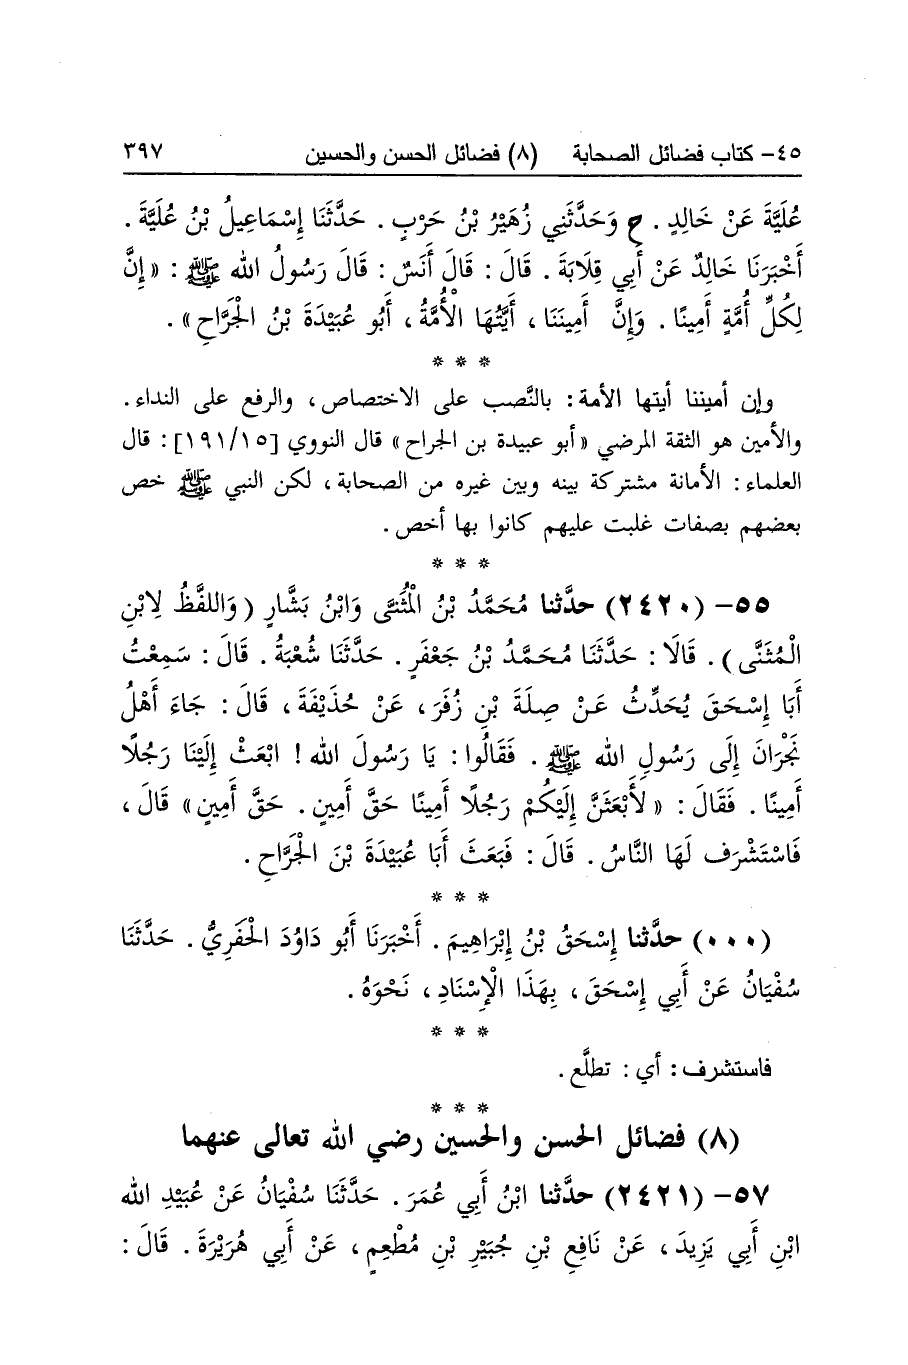 ٤٥- كتاب فضائل الصحابة (٨) فضائل الحسن والحسين ٣٩٧
عُلَيَّةَ عَنْ خَالِدٍ . ح وَحَدَّثَنِي زُهَيْرُ بْنُ حَرْبٍ . حَدَّثَنَا إِسْمَاعِيلُ بْنُ عُلَيَّةَ .
أَخْبَرَنَا خَالِدٌ عَنْ أَبِي قِلَابَةَ . قَالَ : قَالَ أَنَسٌ : قَالَ رَسُولُ الله ﷺ : « إِنَّ
لِكُلِّ أُمَّةٍ أَمِينًا . وَإِنَّ أَمِينَنَا ، أَيَّتُهَا الْأُمَّةُ ، أَبُو عُبَيْدَةَ بْنُ الْجَرَّاحِ» .
* * *
وإن أميننا أيتها الأمة : بالنَّصب على الاختصاص، والرفع على النداء .
والأمين هو الثقة المرضي «أبو عبيدة بن الجراح» قال النووي [١٩١/١٥] : قال
العلماء : الأمانة مشتركة بينه وبين غيره من الصحابة ، لكن النبي ﷺ خص
بعضهم بصفات غلبت عليهم كانوا بها أخص .
* * *
٥٥- (٢٤٢٠) حدَّثنا مُحَمَّدُ بْنُ الْمُثَنَّى وَابْنُ بَشَّارٍ (وَاللفَّظُ لِابْنِ
الْمُثَنَّى) . قَالَا : حَدَّثَنَا مُحَمَّدُ بْنُ جَعْفَرٍ . حَدَّثَنَا شُعْبَةُ . قَالَ : سَمِعْتُ
أَبَا إِسْحَقَ يُحَدِّثُ عَنْ صِلَةَ بْنِ زُفَرَ ، عَنْ حُذَيْفَةَ ، قَالَ : جَاءَ أَهْلُ
نَجْرَانَ إِلَى رَسُولِ الله ﷺ . فَقَالُوا : يَا رَسُولَ الله ! ابْعَثْ إِلَيْنَا رَجُلًا
أَمِينًا . فَقَالَ : « لأَبْعَثَنَّ إِلَيْكُمْ رَجُلًا أَمِينًا حَقَّ أَمِينٍ . حَقَّ أَمِينٍ» قَالَ ،
فَاسْتَشْرَفَ لَهَا النَّاسُ . قَالَ : فَبَعَثَ أَبَا عُبَيْدَةَ بْنَ الْجَرَّاحِ .
* * *
(٠٠٠) حدَّثنا إِسْحَقُ بْنُ إِبْرَاهِيمَ . أَخْبَرَنَا أَبُو دَاوُدَ الْحَفَرِيُّ . حَدَّثَنَا
سُفْيَانُ عَنْ أَبِي إِسْحَقَ ، بِهَذَا الْإِسْنَادِ ، نَحْوَهُ .
* * *
فاستشرف : أي : تطلَّع .
* * *
(٨) فضائل الحسن والحسين رضي الله تعالى عنهما
٥٧- (٢٤٢١) حدَّثنا ابْنُ أَبِي عُمَرَ . حَدَّثَنَا سُفْيَانُ عَنْ عُبَيْدِ الله
ابْنِ أَبِي يَزِيدَ ، عَنْ نَافِعِ بْنِ جُبَيْرِ بْنِ مُطْعِمٍ ، عَنْ أَبِي هُرَيْرَةَ . قَالَ :